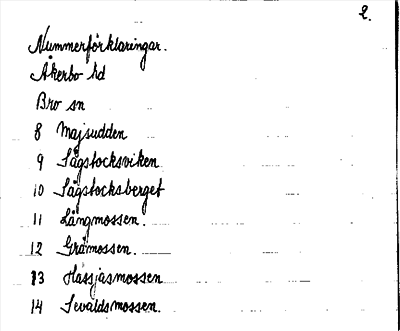 2.
Nummerförklaringar.
Åkerbo hd
Bro sn
8 Majsudden
9 Sågstocksviken
10 Sågstocksberget
11 Långmossen.
12 Gråmossen.
13 Hässjasmossen
14 Sevaldsmossen.